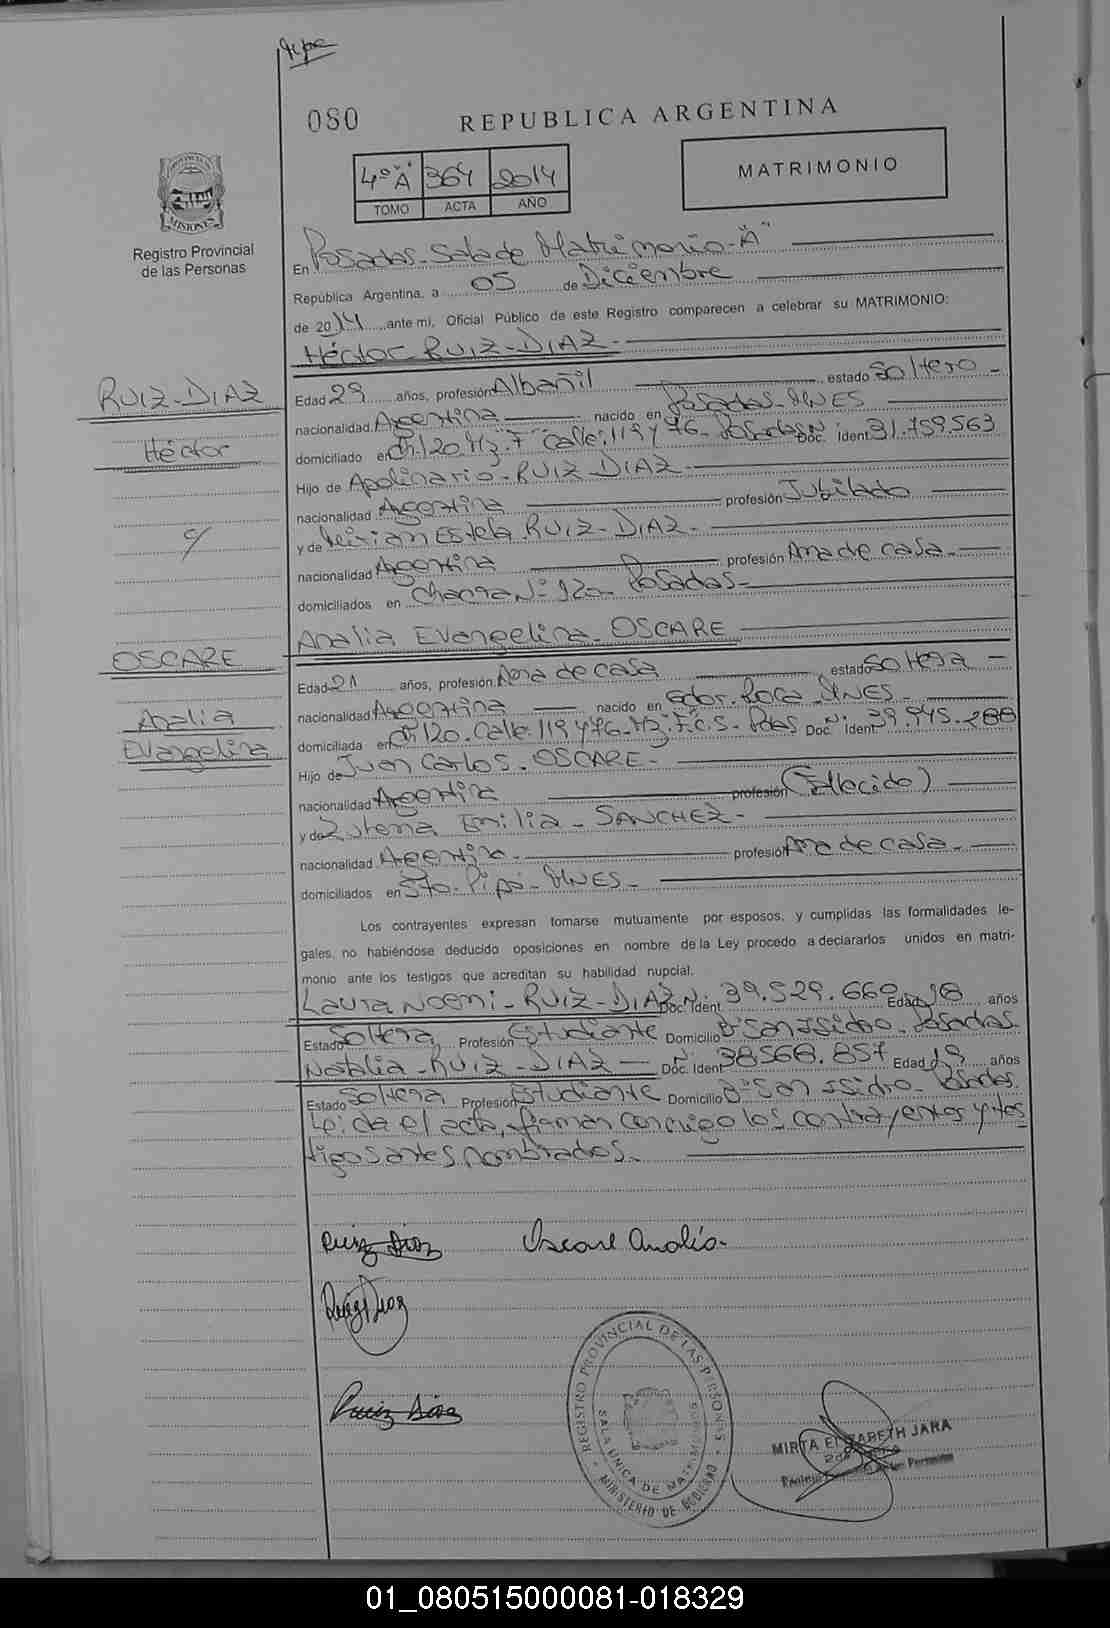 080
REPUBLICA ARGENTINA
4º "A" 364 2014
TOMO ACTA AÑO
MATRIMONIO
Registro Provincial
de las Personas
En Posadas-Sala de Matrimonio-"A"
República Argentina, a 05 de Diciembre
de 2014 ante mi, Oficial Público de este Registro comparecen a celebrar su MATRIMONIO:
Héctor RUIZ-DIAZ-
RUIZ-DIAZ
Héctor
Edad 29 años, profesión Albañil estado Soltero-
nacionalidad Argentina nacido en Posadas-MNES
domiciliado en Ch.120.Mz."F" Calle:119 y 76-Posadas Doc. Ident 31.759.563
Hijo de Apolinario-RUIZ DIAZ-
nacionalidad Argentina profesión Jubilado
y de Mirian Estela RUIZ-DIAZ-
nacionalidad Argentina profesión Ama de casa-
domiciliados en Chacra Nº 120- Posadas-
Analia Evangelina-OSCARE
OSCARE
Analia
Evangelina
Edad 21 años, profesión Ama de casa estado Soltera-
nacionalidad Argentina nacido en Gdor. Roca MNES-
domiciliada en Ch.120-Calle:119 y 76-Mz:F.C.5- Pdas Doc. Ident 39.945.288
Hijo de Juan Carlos-OSCARE-
nacionalidad Argentina profesión (Fallecido)
y de Emilia-SANCHEZ-
nacionalidad Argentina- profesión Ama de casa-
domiciliados en Sto. Pipó-MNES-
Los contrayentes expresan tomarse mutuamente por esposos, y cumplidas las formalidades le-
gales, no habiéndose deducido oposiciones en nombre de la Ley procedo a declararlos unidos en matri-
monio ante los testigos que acreditan su habilidad nupcial.
Laura Noemi-RUIZ-DIAZ Doc. Ident 39.529.660 Edad 18 años
Estado Soltera Profesión Estudiante Domicilio Bº San Isidro-Posadas
Natalia-RUIZ-DIAZ Doc. Ident 38568.857 Edad 19 años
Estado Soltera Profesión Estudiante Domicilio Bº San Isidro-Posadas
Leida el acta, firman conmigo los contrayentes y tes
tigos antes nombrados.
Ruiz Diaz Oscare Analia-
Ruiz Diaz
Ruiz Diaz
REGISTRO PROVINCIAL DE LAS PERSONAS
SALA UNICA DE MATRIMONIOS
MINISTERIO DE GOBIERNO
MIRTA ELIZABETH JARA
01_080515000081-018329